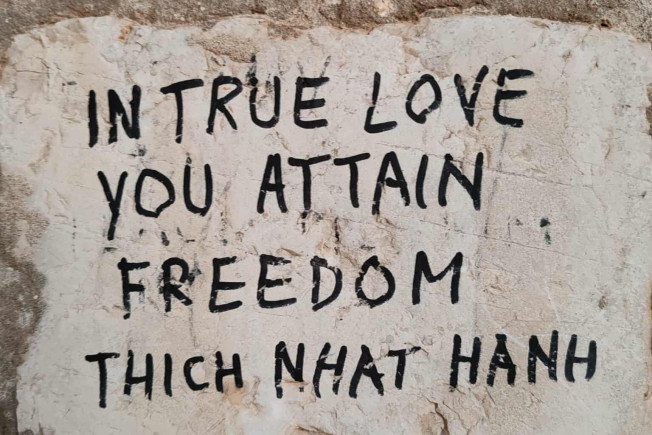 IN TRUE LOVE
YOU ATTAIN
FREEDOM
THICH NHAT HANH